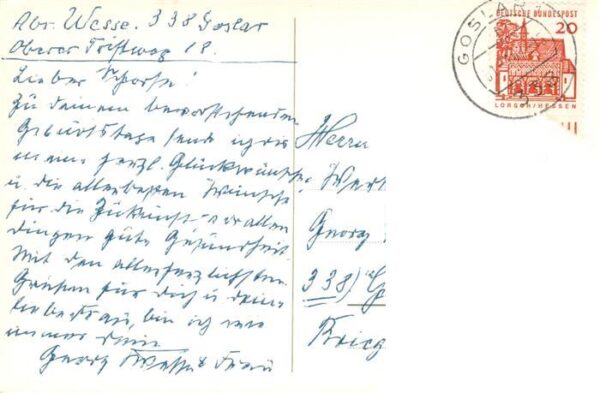 Abs. Wesse. 338 Goslar
Oberer Triftweg 18.
Lieber Schorse!
Zu deinem bevorstehenden
Geburtstage sende ich dir
meine herzl. Glückwünsche
u. die allerbesten Wünsche
für die Zukunft vor allen
dingen gute Gesundheit.
Mit den allerherzlichsten
Grüßen für dich u. deine
liebe Frau, bin ich wie
immer dein
Georg Wesse u. Frau
Herrn
Wer
Georg
338) G
Krieg
GOSLAR
DEUTSCHE BUNDESPOST
20
LORSCH/HESSEN